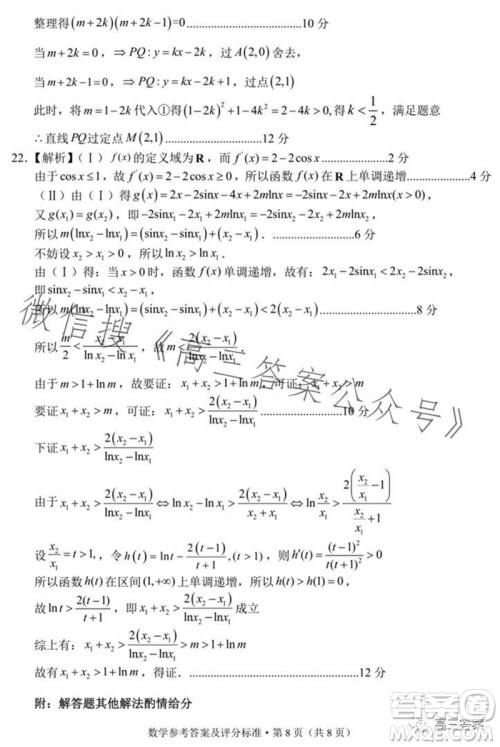 整理得(m+2k)(m+2k-1)=0........................10 分
当 m+2k=0，⇒ PQ: y=kx-2k，过 A(2,0) 舍去，
当 m+2k-1=0，⇒ PQ: y=kx-2k+1，过点(2,1)
此时，将 m=1-2k 代入①得(1-2k)²+1-4k²=2-4k>0，得 k<1/2，满足题意
∴直线 PQ 过定点 M(2,1)........................12 分
22.【解析】(Ⅰ) f(x)的定义域为 R，而 f'(x)=2-2cosx........................2 分
由于 cosx≤1，故 f'(x)=2-2cosx≥0，所以函数 f(x)在 R 上单调递增........................4 分
(Ⅱ)由(Ⅰ)得 g(x)=2x-2sinx-4x+2mlnx=-2sinx-2x+2mlnx(x>0)，
又 g(x₁)=g(x₂)，即-2sinx₁-2x₁+2mlnx₁=-2sinx₂-2x₂+2mlnx₂，
所以 m(lnx₂-lnx₁)=(sinx₂-sinx₁)+(x₂-x₁)．........................6 分
不妨设 x₂>x₁>0，所以 lnx₂>lnx₁．
由(Ⅰ)得：当 x>0 时，函数 f(x)单调递增，故有：2x₁-2sinx₁<2x₂-2sinx₂，
即 sinx₂-sinx₁<x₂-x₁，
所以 m(lnx₂-lnx₁)=(sinx₂-sinx₁)+(x₂-x₁)<2(x₂-x₁)........................8 分
所以 m/2<(x₂-x₁)/(lnx₂-lnx₁)，故 m<2(x₂-x₁)/(lnx₂-lnx₁)
由于 m>1+lnm，故要证：x₁+x₂>1+lnm，可证：x₁+x₂>m，
要证 x₁+x₂>m，可证：x₁+x₂>2(x₂-x₁)/(lnx₂-lnx₁)........................10 分
下证 x₁+x₂>2(x₂-x₁)/(lnx₂-lnx₁)
由于 x₁+x₂>2(x₂-x₁)/(lnx₂-lnx₁)⇔lnx₂-lnx₁>2(x₂-x₁)/(x₂+x₁)⇔ln(x₂/x₁)>2(x₂/x₁-1)/(x₂/x₁+1)
设 x₂/x₁=t>1，令 h(t)=lnt-2(t-1)/(t+1)，(t>1)，则 h'(t)=(t-1)²/t(t+1)²>0
所以函数 h(t)在区间(1,+∞)上单调递增，所以 h(t)>h(1)=0，
故 lnt>2(t-1)/(t+1)，即 x₁+x₂>2(x₂-x₁)/(lnx₂-lnx₁)成立
综上有：x₁+x₂>2(x₂-x₁)/(lnx₂-lnx₁)>m>1+lnm
故有：x₁+x₂>1+lnm，得证........................12 分
附：解答题其他解法酌情给分
数学参考答案及评分标准·第 8 页（共 8 页）
微信搜《高三答案公众号》
高三答案